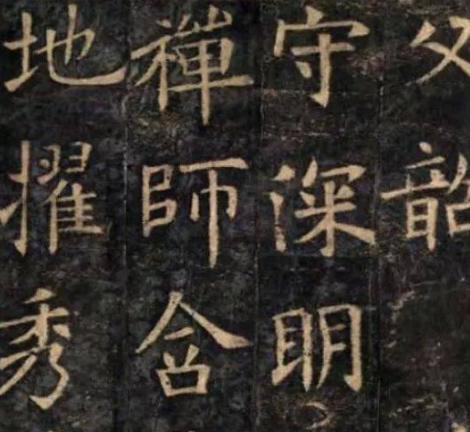 父韶
守深明
禪師含
地擢秀